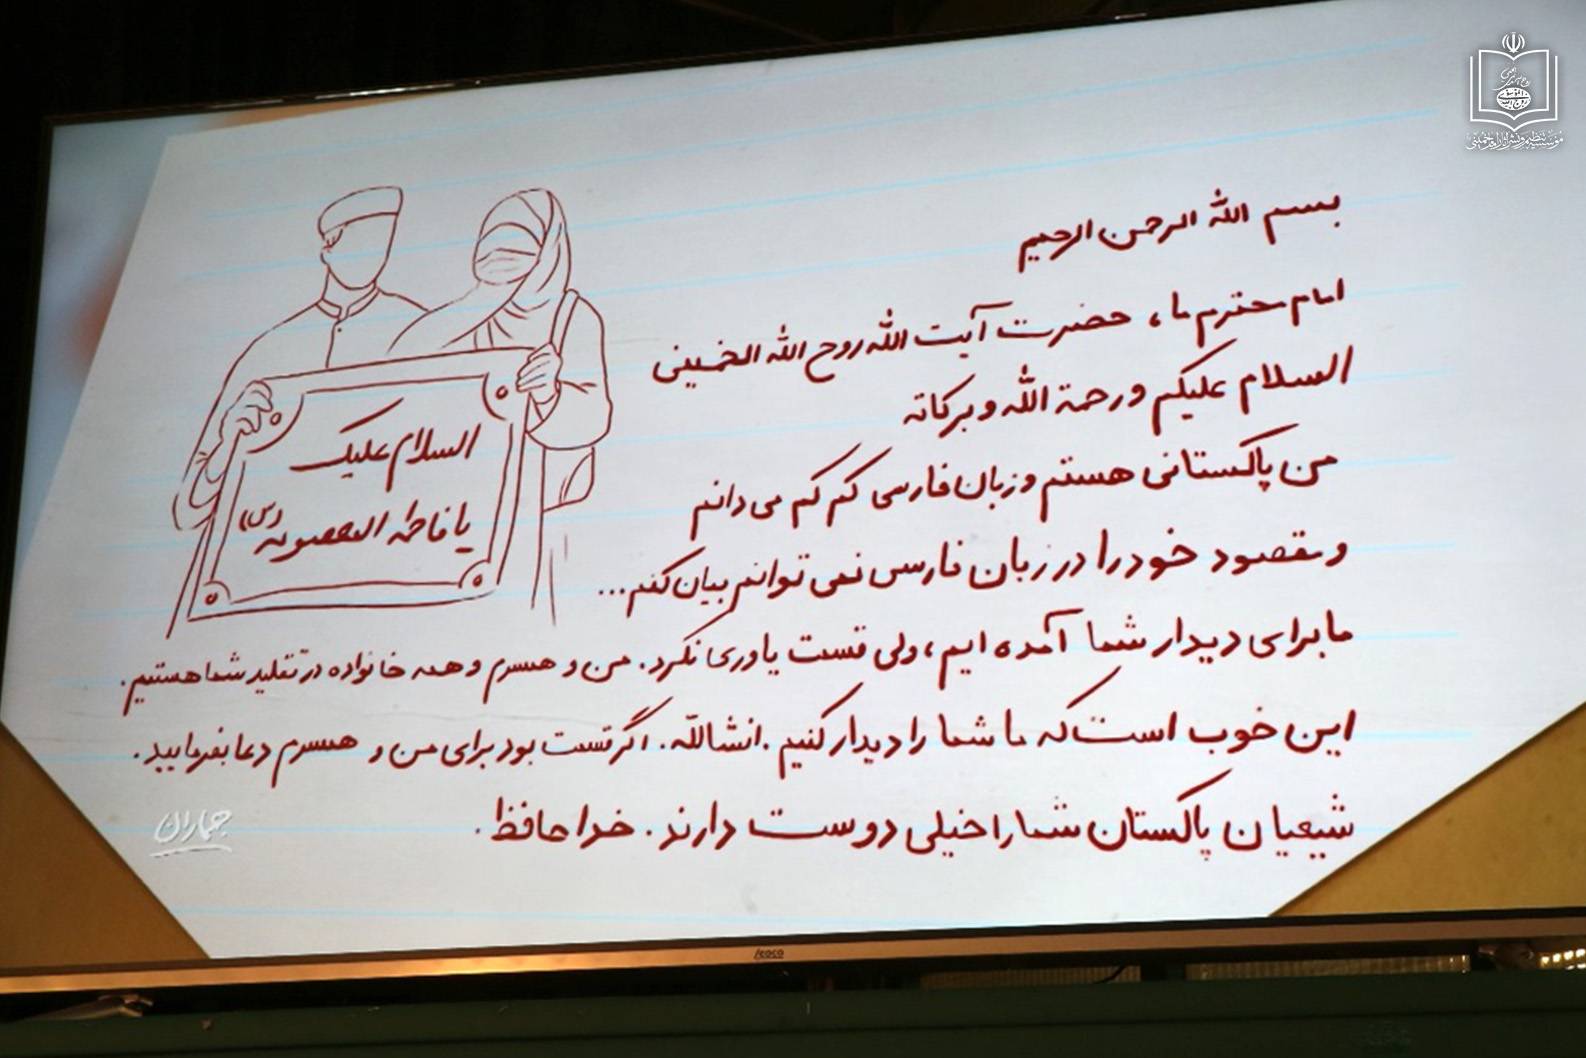 بسم الله الرحمن الرحیم
امام محترم ما، حضرت آیت الله روح الله الخمینی
السلام علیکم و رحمة الله و برکاته
من پاکستانی هستم و زبان فارسی کم کم می دانم
و مقصود خود را در زبان فارسی نمی توانم بیان کنم...
ما برای دیدار شما آمده ایم، ولی قسمت یاوری نکرد. من و همسرم و همه خانواده در تقلید شما هستیم.
این خوب است که ما شما را دیدار کنیم. انشاللّه. اگر قسمت بود برای من و همسرم دعا بفرمایید.
شیعیان پاکستان شما را خیلی دوست دارند. خداحافظ.
السلام علیک
یا فاطمة المعصومه (س)
جماران
مؤسسه تنظیم و نشر آثار امام خمینی